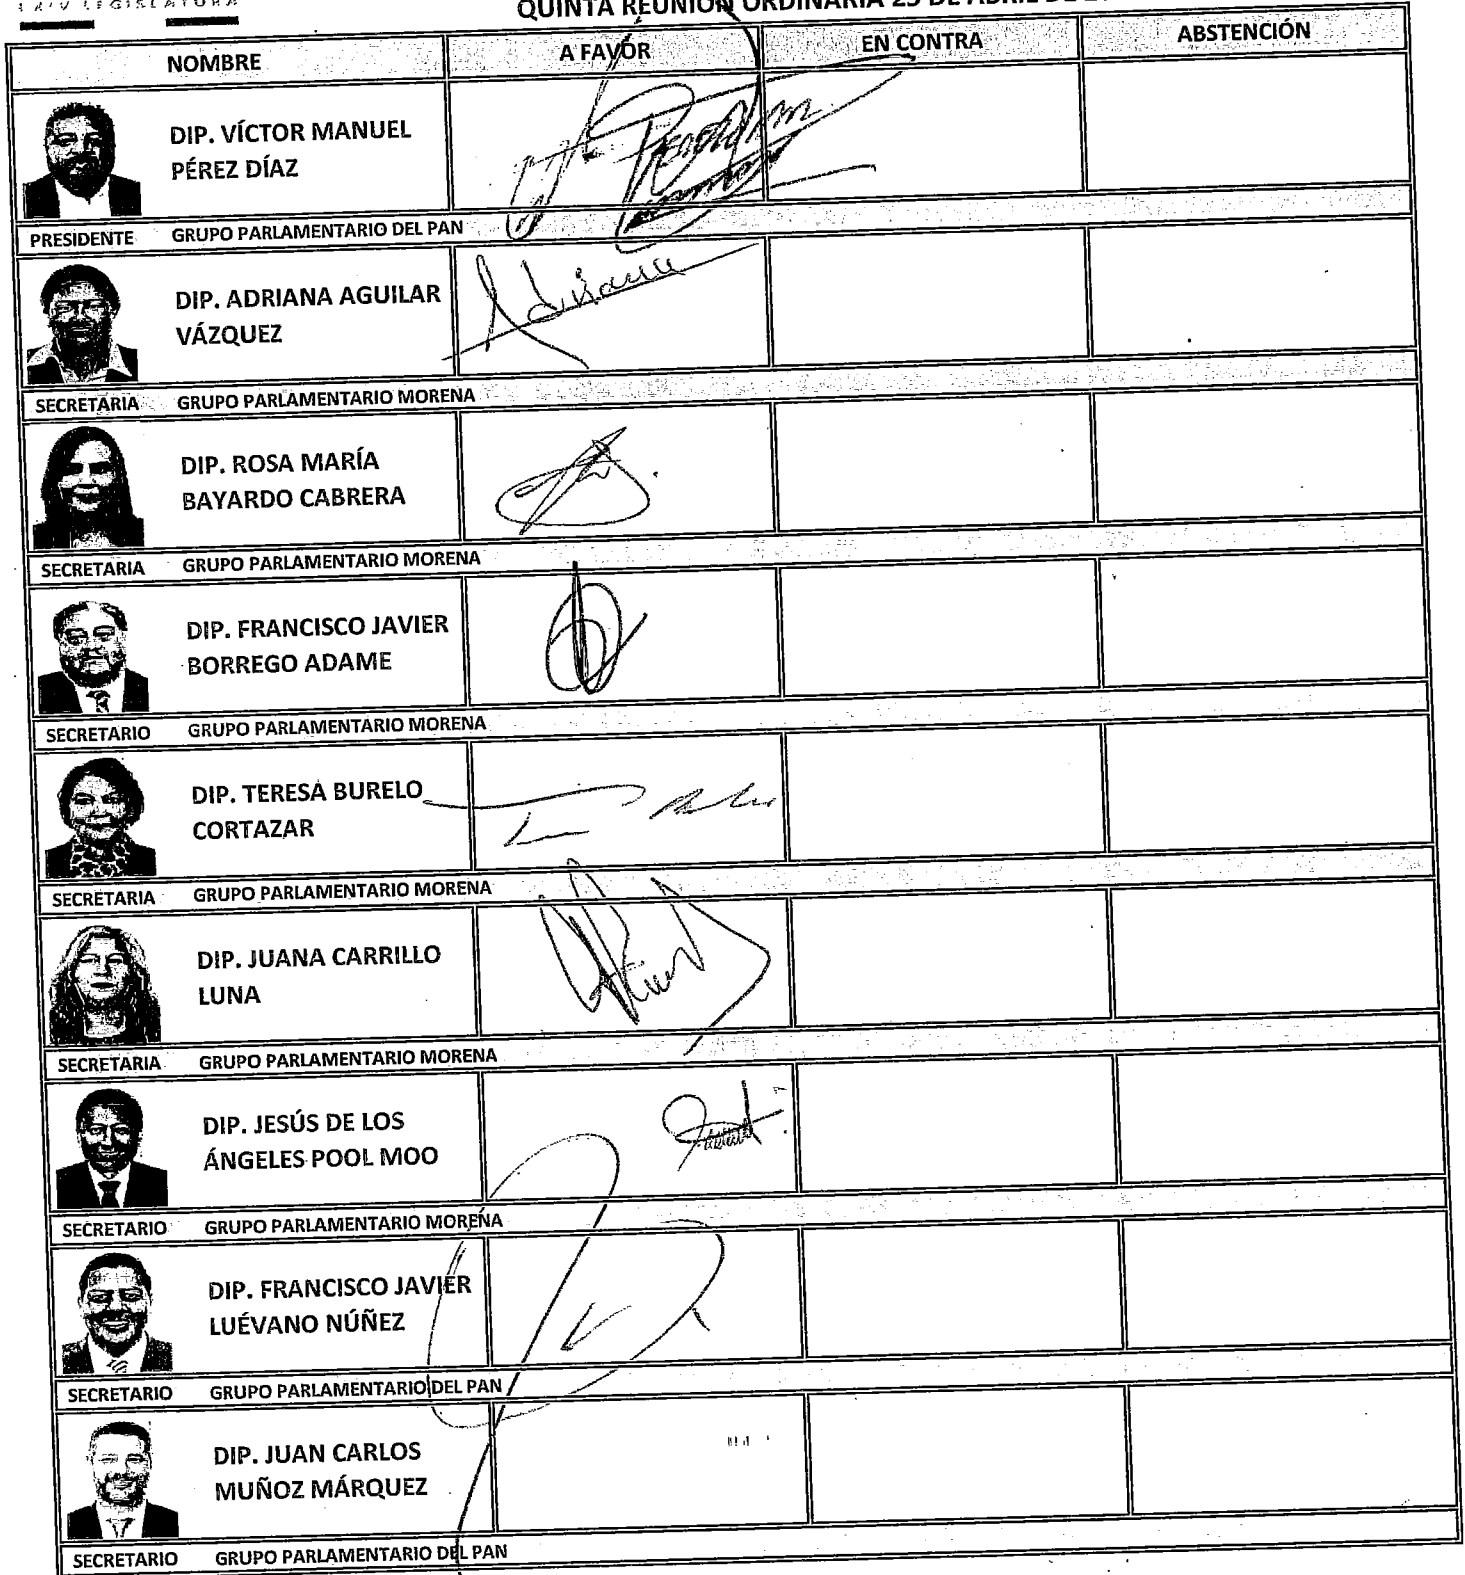 LXIV LEGISLATURA
QUINTA REUNIÓN ORDINARIA 25 DE ABRIL DE
NOMBRE A FAVOR EN CONTRA ABSTENCIÓN
DIP. VÍCTOR MANUEL
PÉREZ DÍAZ
PRESIDENTE GRUPO PARLAMENTARIO DEL PAN
DIP. ADRIANA AGUILAR
VÁZQUEZ
Adriana
SECRETARIA GRUPO PARLAMENTARIO MORENA
DIP. ROSA MARÍA
BAYARDO CABRERA
SECRETARIA GRUPO PARLAMENTARIO MORENA
DIP. FRANCISCO JAVIER
BORREGO ADAME
SECRETARIO GRUPO PARLAMENTARIO MORENA
DIP. TERESA BURELO
CORTAZAR
SECRETARIA GRUPO PARLAMENTARIO MORENA
DIP. JUANA CARRILLO
LUNA
SECRETARIA GRUPO PARLAMENTARIO MORENA
DIP. JESÚS DE LOS
ÁNGELES POOL MOO
SECRETARIO GRUPO PARLAMENTARIO MORENA
DIP. FRANCISCO JAVIER
LUÉVANO NÚÑEZ
SECRETARIO GRUPO PARLAMENTARIO DEL PAN
DIP. JUAN CARLOS
MUÑOZ MÁRQUEZ
SECRETARIO GRUPO PARLAMENTARIO DEL PAN